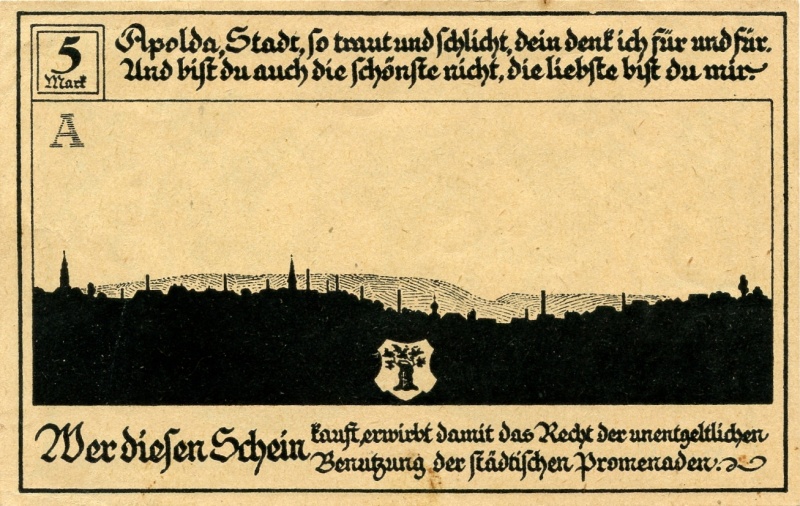 5
Mark
Apolda, Stadt, so traut und schlicht, dein denk ich für und für.
Und bist du auch die schönste nicht, die liebste bist du mir.
A
Wer diesen Schein kauft, erwirbt damit das Recht der unentgeltlichen
Benutzung der städtischen Promenaden.